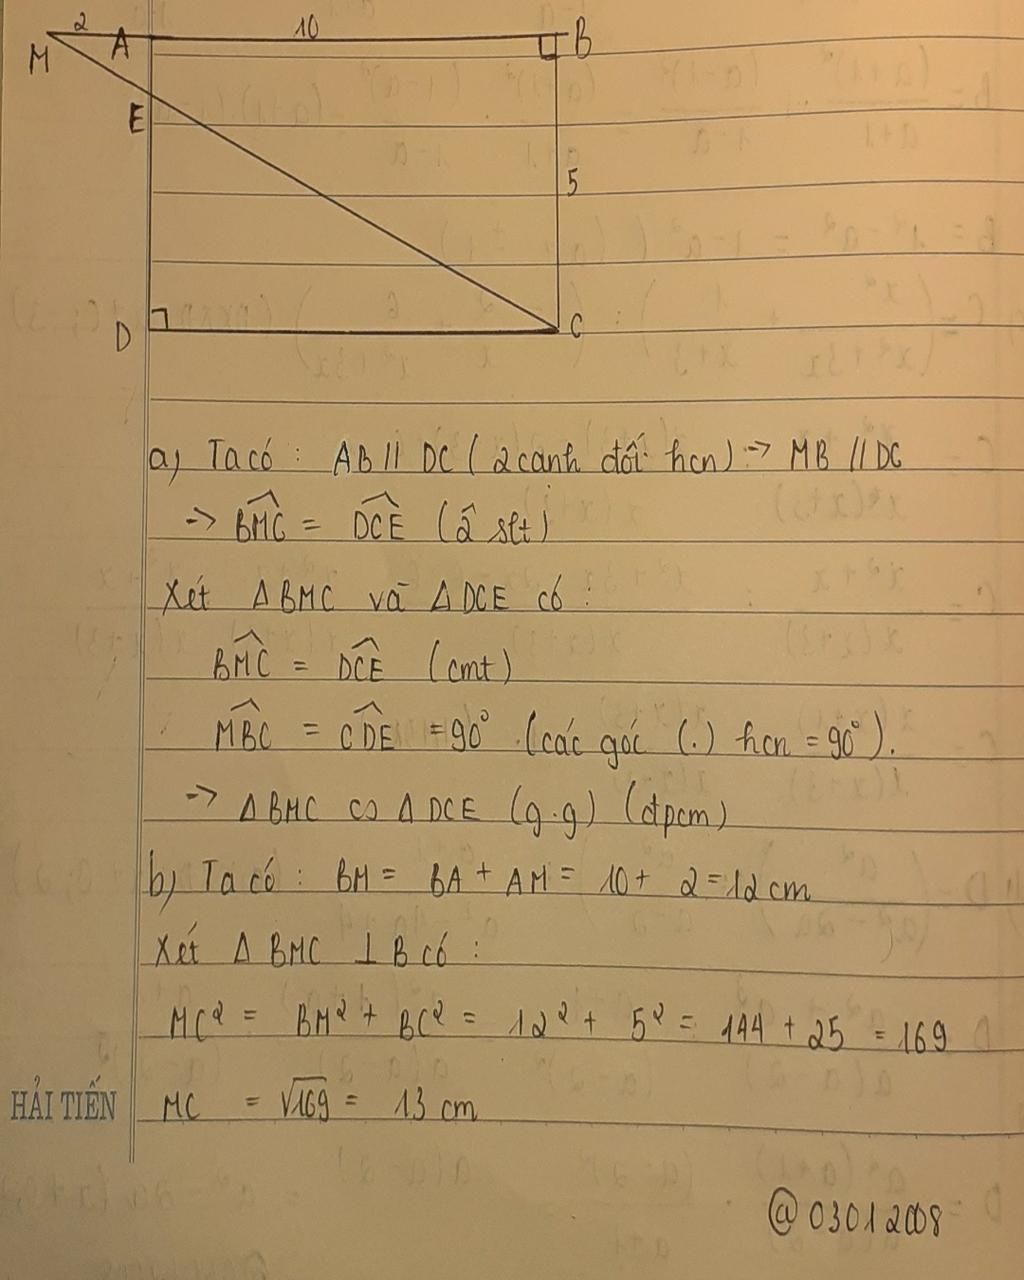 2
10
M
A
B
E
5
D
C
a) Ta có : AB // DC ( 2 cạnh đối hcn ) -> MB // DC
-> BMC = DCE ( 2 slt )
Xét Δ BMC và Δ DCE có :
BMC = DCE (cmt)
MBC = CDE = 90° ( các góc (.) hcn = 90° ).
-> Δ BMC ∽ Δ DCE (g.g) (đpcm)
b) Ta có : BM = BA + AM = 10 + 2 = 12 cm
Xét Δ BMC ⊥ B có :
MC² = BM² + BC² = 12² + 5² = 144 + 25 = 169
HẢI TIẾN
MC = √169 = 13 cm
@03012008